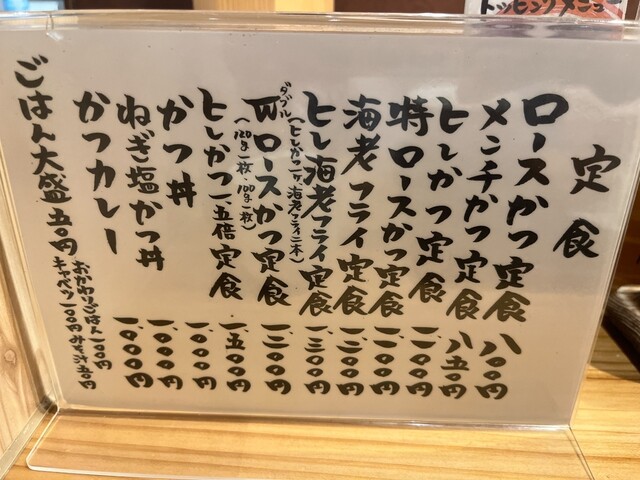 トッピングメニュー
定食
ロースかつ定食 八〇〇円
メンチかつ定食 八五〇円
ヒレかつ定食 一、一〇〇円
特ロースかつ定食 一、一〇〇円
海老フライ定食 一、二〇〇円
ヒレ海老フライ定食 一、三〇〇円
(ヒレかつ一ヶ、海老フライ二本)
ダブル
Wロースかつ定食 一、三〇〇円
(120g一枚・100g一枚)
ヒレかつ一、五倍定食 一、五〇〇円
かつ丼 一、〇〇〇円
ねぎ塩かつ丼 一、〇〇〇円
かつカレー 一、〇〇〇円
ごはん大盛五〇円
おかわりごはん一〇〇円
キャベツ一〇〇円 みそ汁五〇円